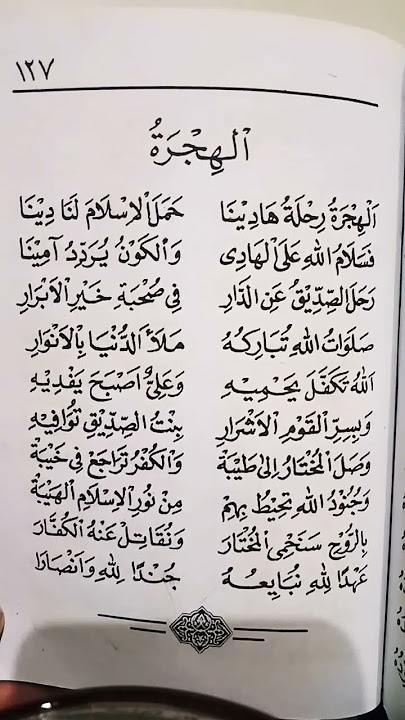 ١٢٧
اَلْهِجْرَةُ
اَلْهِجْرَةُ رِحْلَةُ هَادِيْنَا حَمَلَ الْاِسْلَامَ لَنَا دِيْنَا
فَسَلَامُ اللهِ عَلَى الْهَادِى وَالْكَوْنُ يُرَدِّدُ آمِيْنَا
رَحَلَ الصِّدِّيْقُ عَنِ الدَّارِ فِى صُحْبَةِ خَيْرِ الْاَبْرَارِ
صَلَوَاتُ اللهِ تُبَارِكُهُ مَلَأَ الدُّنْيَا بِالْاَنْوَارِ
اَللهُ تَكَفَّلَ يَحْمِيْهِ وَعَلِىٌّ اَصْبَحَ يَفْدِيْهِ
وَبِسِرِّ الْقَوْمِ الْاَشْرَارِ بِنْتُ الصِّدِّيْقِ تُوَافِيْهِ
وَصَلَ الْمُخْتَارُ اِلىٰ طَيْبَةْ وَالْكُفْرُ تَرَاجَعَ فِى خَيْبَةْ
وَجُنُوْدُ اللهِ تُحِيْطُ بِهِمْ مِنْ نُوْرِ الْاِسْلَامِ الْهَيْبَةْ
بِالرُّوْحِ سَنَحْمِى الْمُخْتَارَ وَنُقَاتِلُ عَنْهُ الْكُفَّارَ
عَهْدًا لِلهِ نُبَايِعُهُ جُنْدًا لِلهِ وَاَنْصَارَا